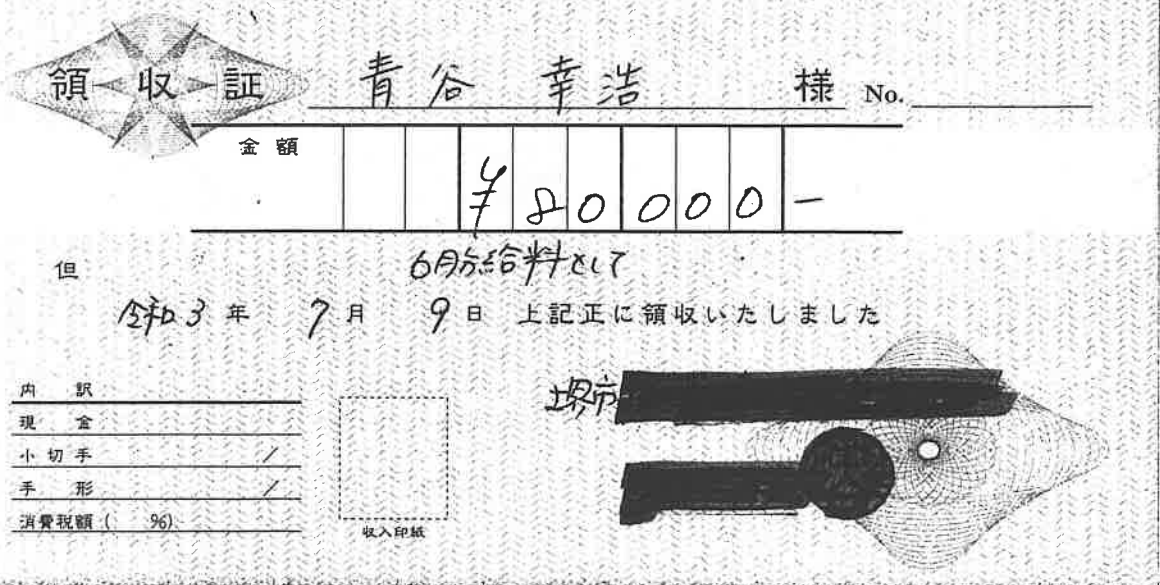 領収証 青谷 幸浩 様 No.
金額 ¥80000-
但 6月分給料として
令和3年 7月 9日 上記正に領収いたしました
堺市
内 訳
現 金
小切手 /
手 形 /
消費税額( %)
収入印紙